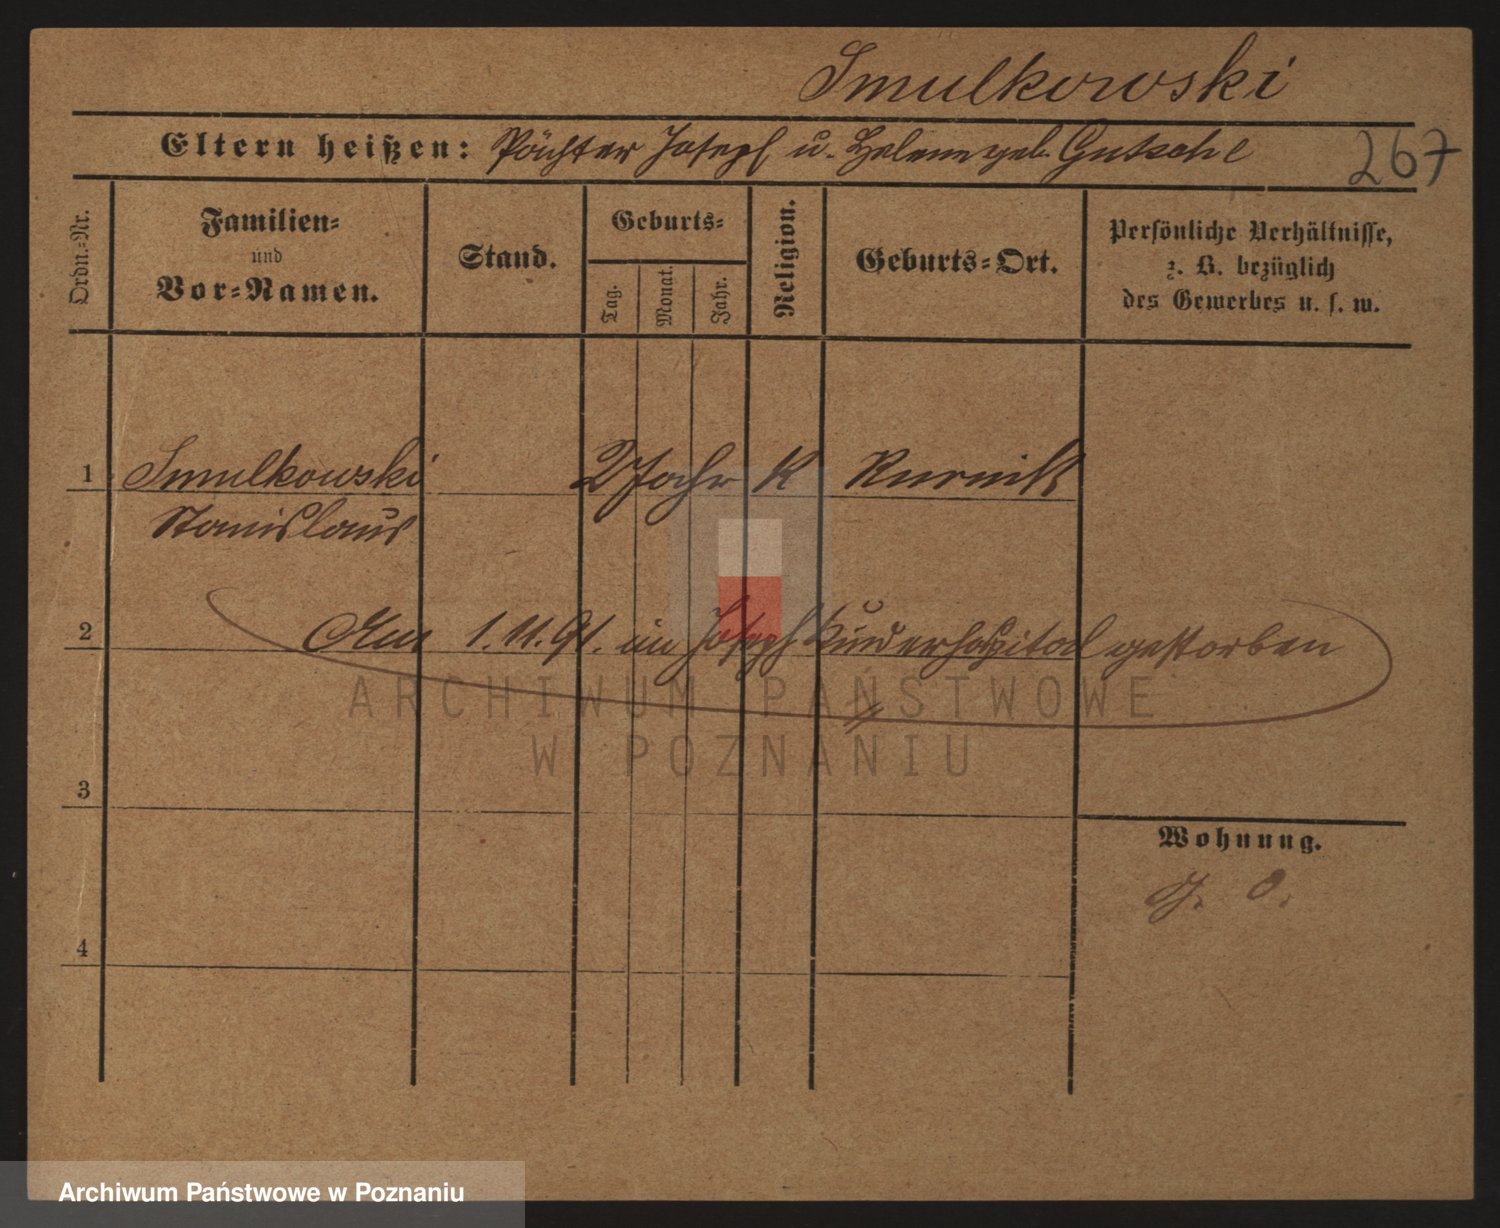 Smulkowski
Eltern heißen: Pächter Joseph u. Helene geb. Gutsche
267
Ordn.=Nr.
Familien=
und
Vor=Namen.
Stand.
Geburts=
Tag.
Monat.
Jahr.
Religion.
Geburts=Ort.
Persönliche Verhältnisse,
z. B. bezüglich
des Gewerbes u. s. w.
1 Smulkowski 2 Jahr K Kurnik
Stanislaus
2 Am 1.11.91. im Joseph Kinderhospital gestorben
ARCHIWUM PAŃSTWOWE
W POZNANIU
3
Wohnung.
4
Archiwum Państwowe w Poznaniu